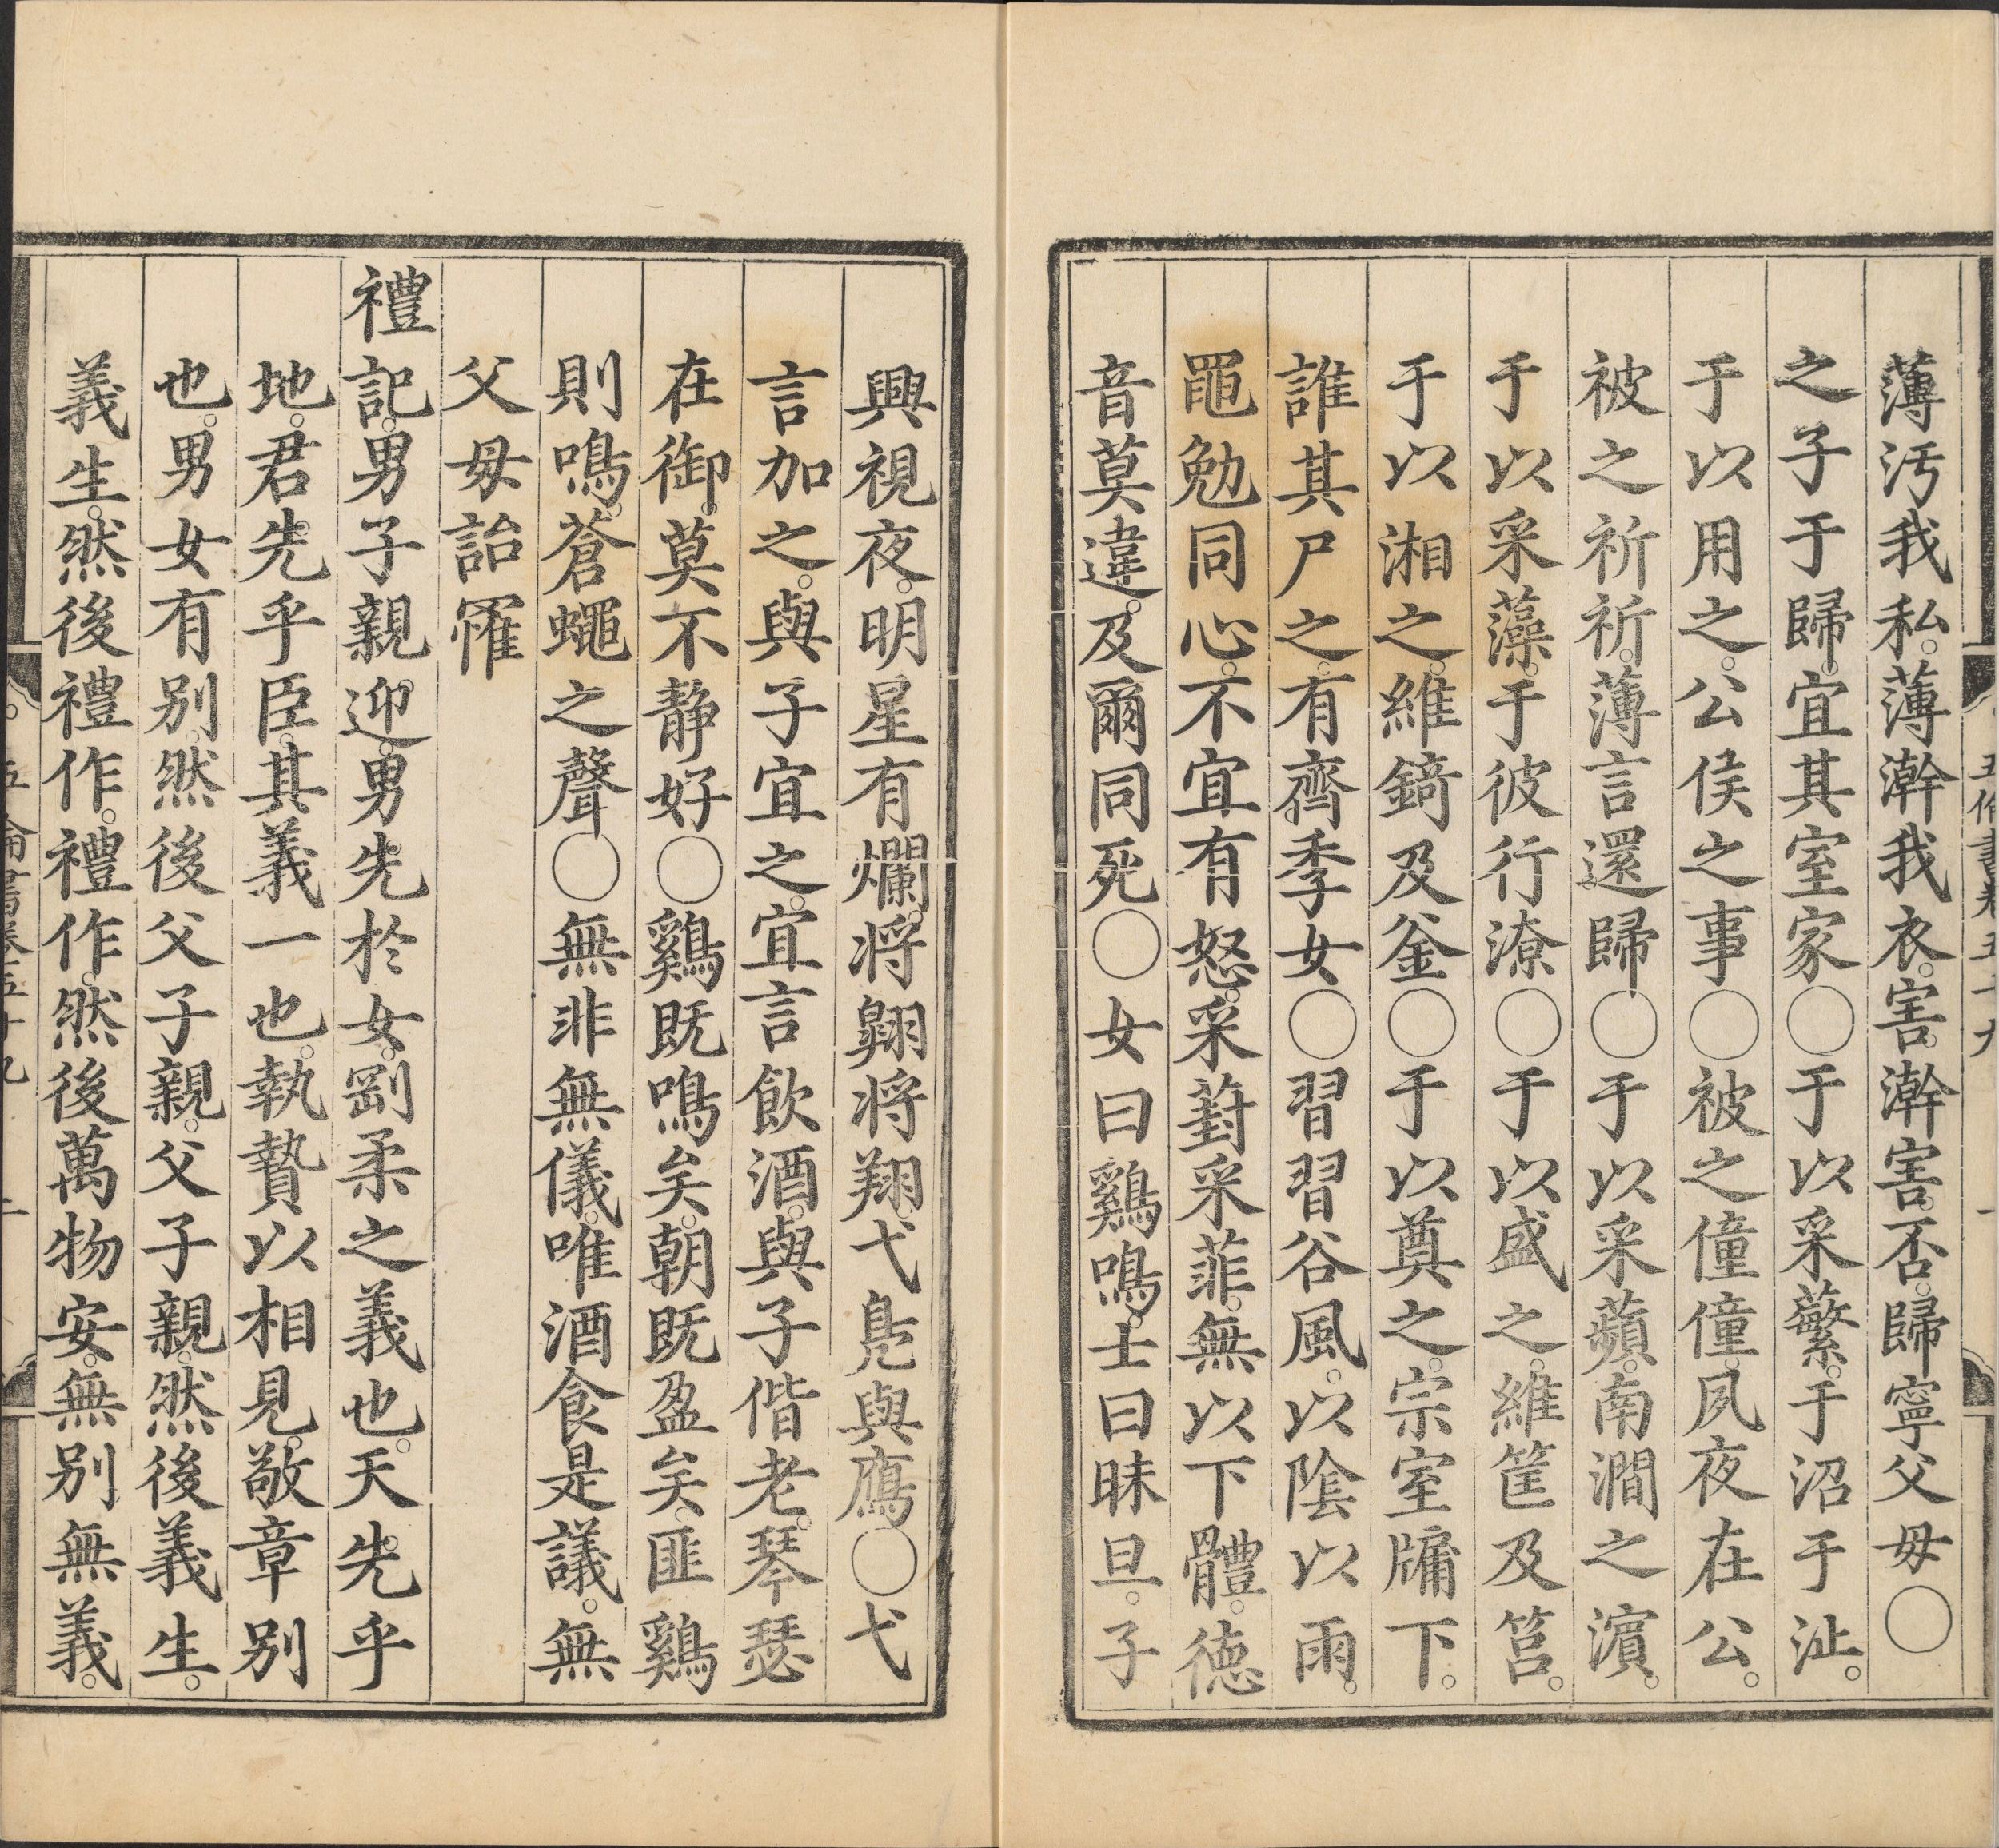 薄汚我私薄澣我衣害澣害否歸寧父毋○
之子于歸宜其室家○于以采蘩于沼于沚
于以用之公侯之事○被之僮僮夙夜在公
被之祈祈薄言還歸○于以采蘋南澗之濱
于以采藻于彼行潦○于以盛之維筐及筥
于以湘之維錡及釜○于以奠之宗室牖下
誰其尸之有齊季女○習習谷風以陰以雨
黽勉同心不宜有怒采葑采菲無以下體德
音莫違及爾同死○女曰鷄鳴士曰昧旦子
興視夜明星有爛將翺將翔弋鳧與鴈○弋
言加之與子宜之宜言飲酒與子偕老琴瑟
在御莫不靜好○鷄既鳴矣朝既盈矣匪鷄
則鳴蒼蠅之聲○無非無儀唯酒食是議無
父毋詒罹
禮記男子親迎男先於女剛柔之義也天先乎
地君先乎臣其義一也執贄以相見敬章別
也男女有別然後父子親父子親然後義生
義生然後禮作禮作然後萬物安無別無義
五倫書卷五十九 二